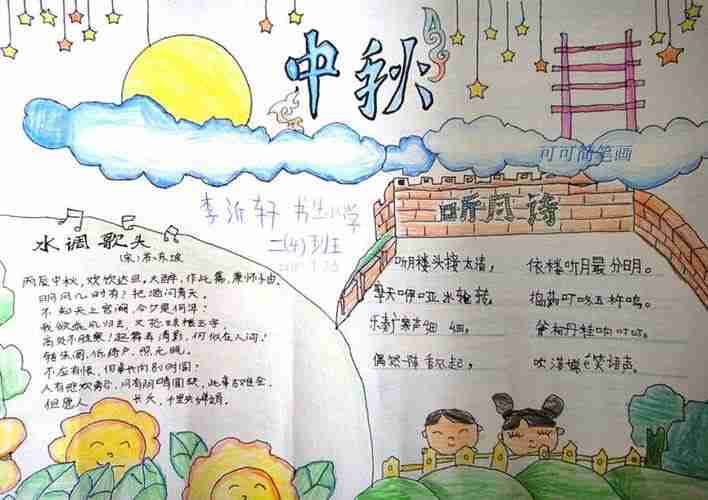 中秋
可可简笔画
李沂轩 书生小学
二(4)班
水调歌头
(宋)苏东坡
丙辰中秋，欢饮达旦，大醉，作此篇，兼怀子由。
明月几时有？把酒问青天。
不知天上宫阙，今夕是何年？
我欲乘风归去，又恐琼楼玉宇，
高处不胜寒！起舞弄清影，何似在人间！
转朱阁，低绮户，照无眠。
不应有恨，何事长向别时圆？
人有悲欢离合，月有阴晴圆缺，此事古难全。
但愿人 长久，千里共婵娟。
明月诗
明楼头接太清， 依楼明月最分明。
摩天咿哑冰轮转， 捣药叮咚玉杵鸣。
乐奏 声细细， 斧柯丹桂响叮叮。
偶然一阵香风起， 吹落嫦娥笑语声。